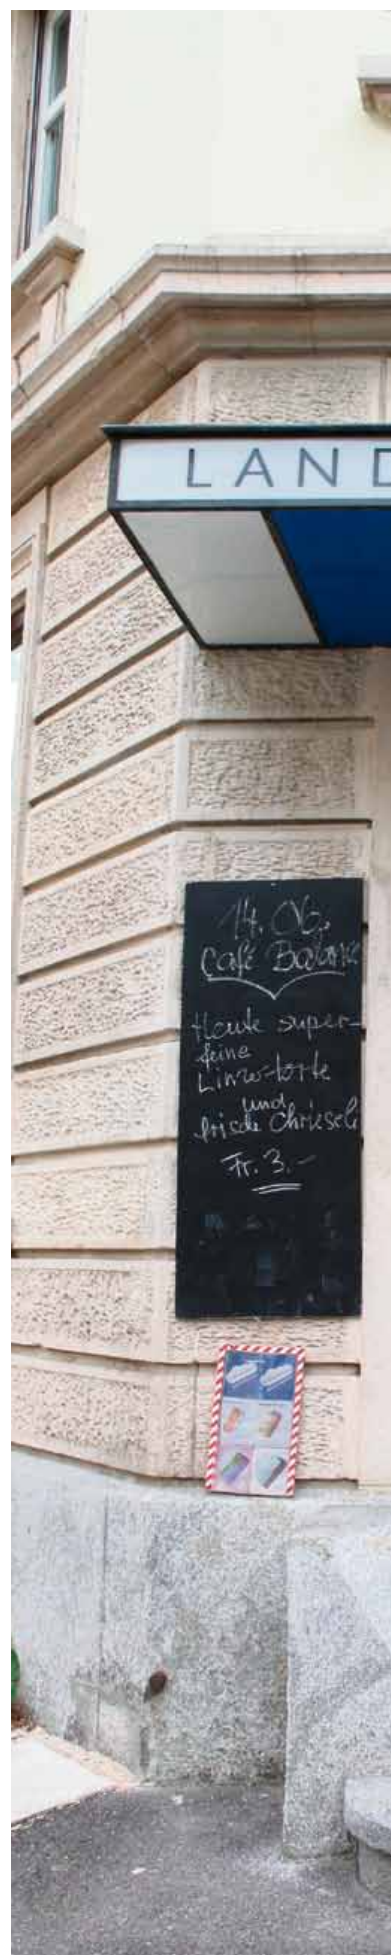 LAND
14. 06.
Café Balance
Heute super-
feine
Linzertorte
und
frische Chrieseli
Fr. 3.–